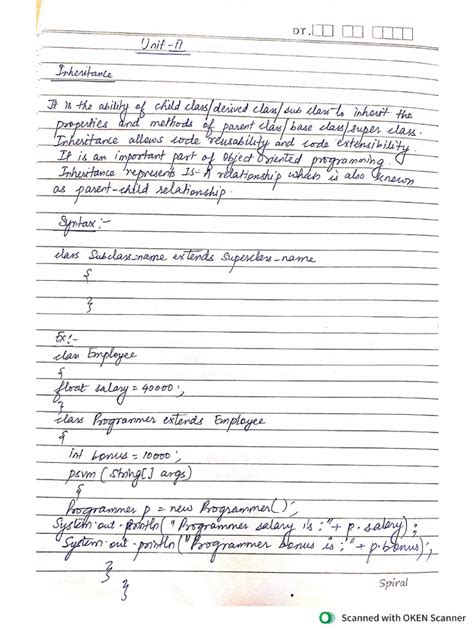 DT.
Unit-II
Inheritance
It is the ability of child class/derived class/sub class to inherit the
properties and methods of parent class/base class/super class.
Inheritance allows code reusability and code extensibility.
It is an important part of Object Oriented programming.
Inheritance represents Is-A relationship which is also known
as parent-child relationship.
Syntax:-
class Subclass_name extends Superclass_name
{
}
Ex:-
class Employee
{
float salary = 40000;
}
class Programmer extends Employee
{
int bonus = 10000;
psvm (String[] args)
{
Programmer p = new Programmer();
System.out.println("Programmer salary is:"+ p.salary);
System.out.println("Programmer bonus is:"+ p.bonus);
}
}
Spiral
Scanned with OKEN Scanner